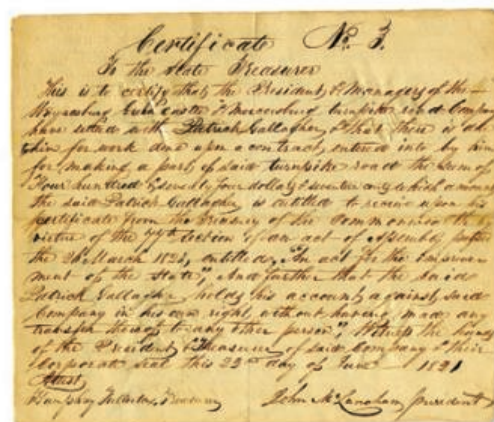 Certificate No. 3.
To the State Treasurer
This is to certify that the President & Managers of the
Waynesburg Greencastle & Mercersburg turnpike road Company
have settled with Patrick Gallagher, & that there is due
him for work done upon a contract, entered into by him
for making a part of said turnpike road the sum of
Four hundred & seventy four dollars & seventeen cents which amount
the said Patrick Gallagher is entitled to receive upon his
certificate from the Treasury of the Commonwealth by
virtue of the 74th section of an act of Assembly passed
the 26 March 1821, entitled, "An act for the improve-
ment of the State", And further that the said
Patrick Gallagher holds his account against said
Company in his own right, without having made any
transfer thereof to any other person". Witness the hands
of the President & Treasurer of said Company & their
corporate seal this 22nd day of June 1821
Attest
Humphrey Fullerton, Treasurer John McLanahan President